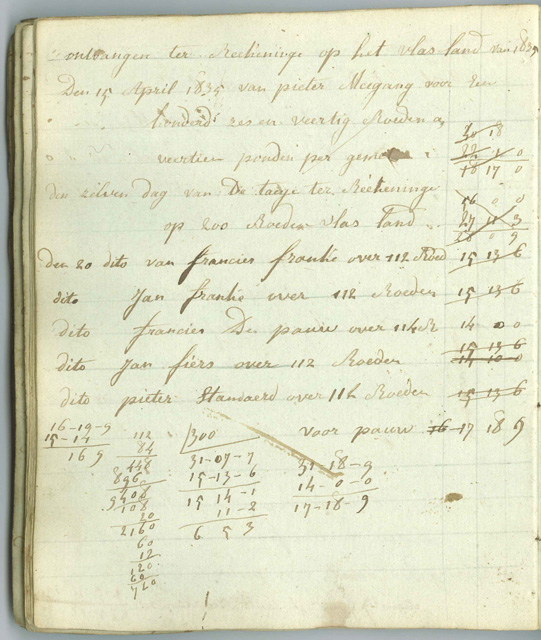 ontvangen ter Reekeninge op het vlas land van 1835
Den 15 April 1835 van pieter Meigang voor Een
honderd zes en veertig Roeden a
30 18
veertien ponden per gemet
18 17 0
den zelven dag van De taeje ter Reekeninge
56 0 0
op 200 Roeden vlas land
27 11 3
28 0 9
den 20 dito van francies franke over 112 Roed 15 13 6
dito Jan franke over 112 Roeden 15 13 6
dito francies De pauw over 114 R 14 0 0
15 13 6
dito Jan fiers over 112 Roeden 14 10 0
dito pieter Standaerd over 112 Roeden 15 13 6
voor pauw 16 17 18 9
16-19-9
15-14
1 6 9
112
84
448
896
9408
108
20
2160
60
12
120
60
720
300
31-07-7
15-13-6
15 14-1
11-2
6 5 3
31 18-9
14-0-0
17-18-9